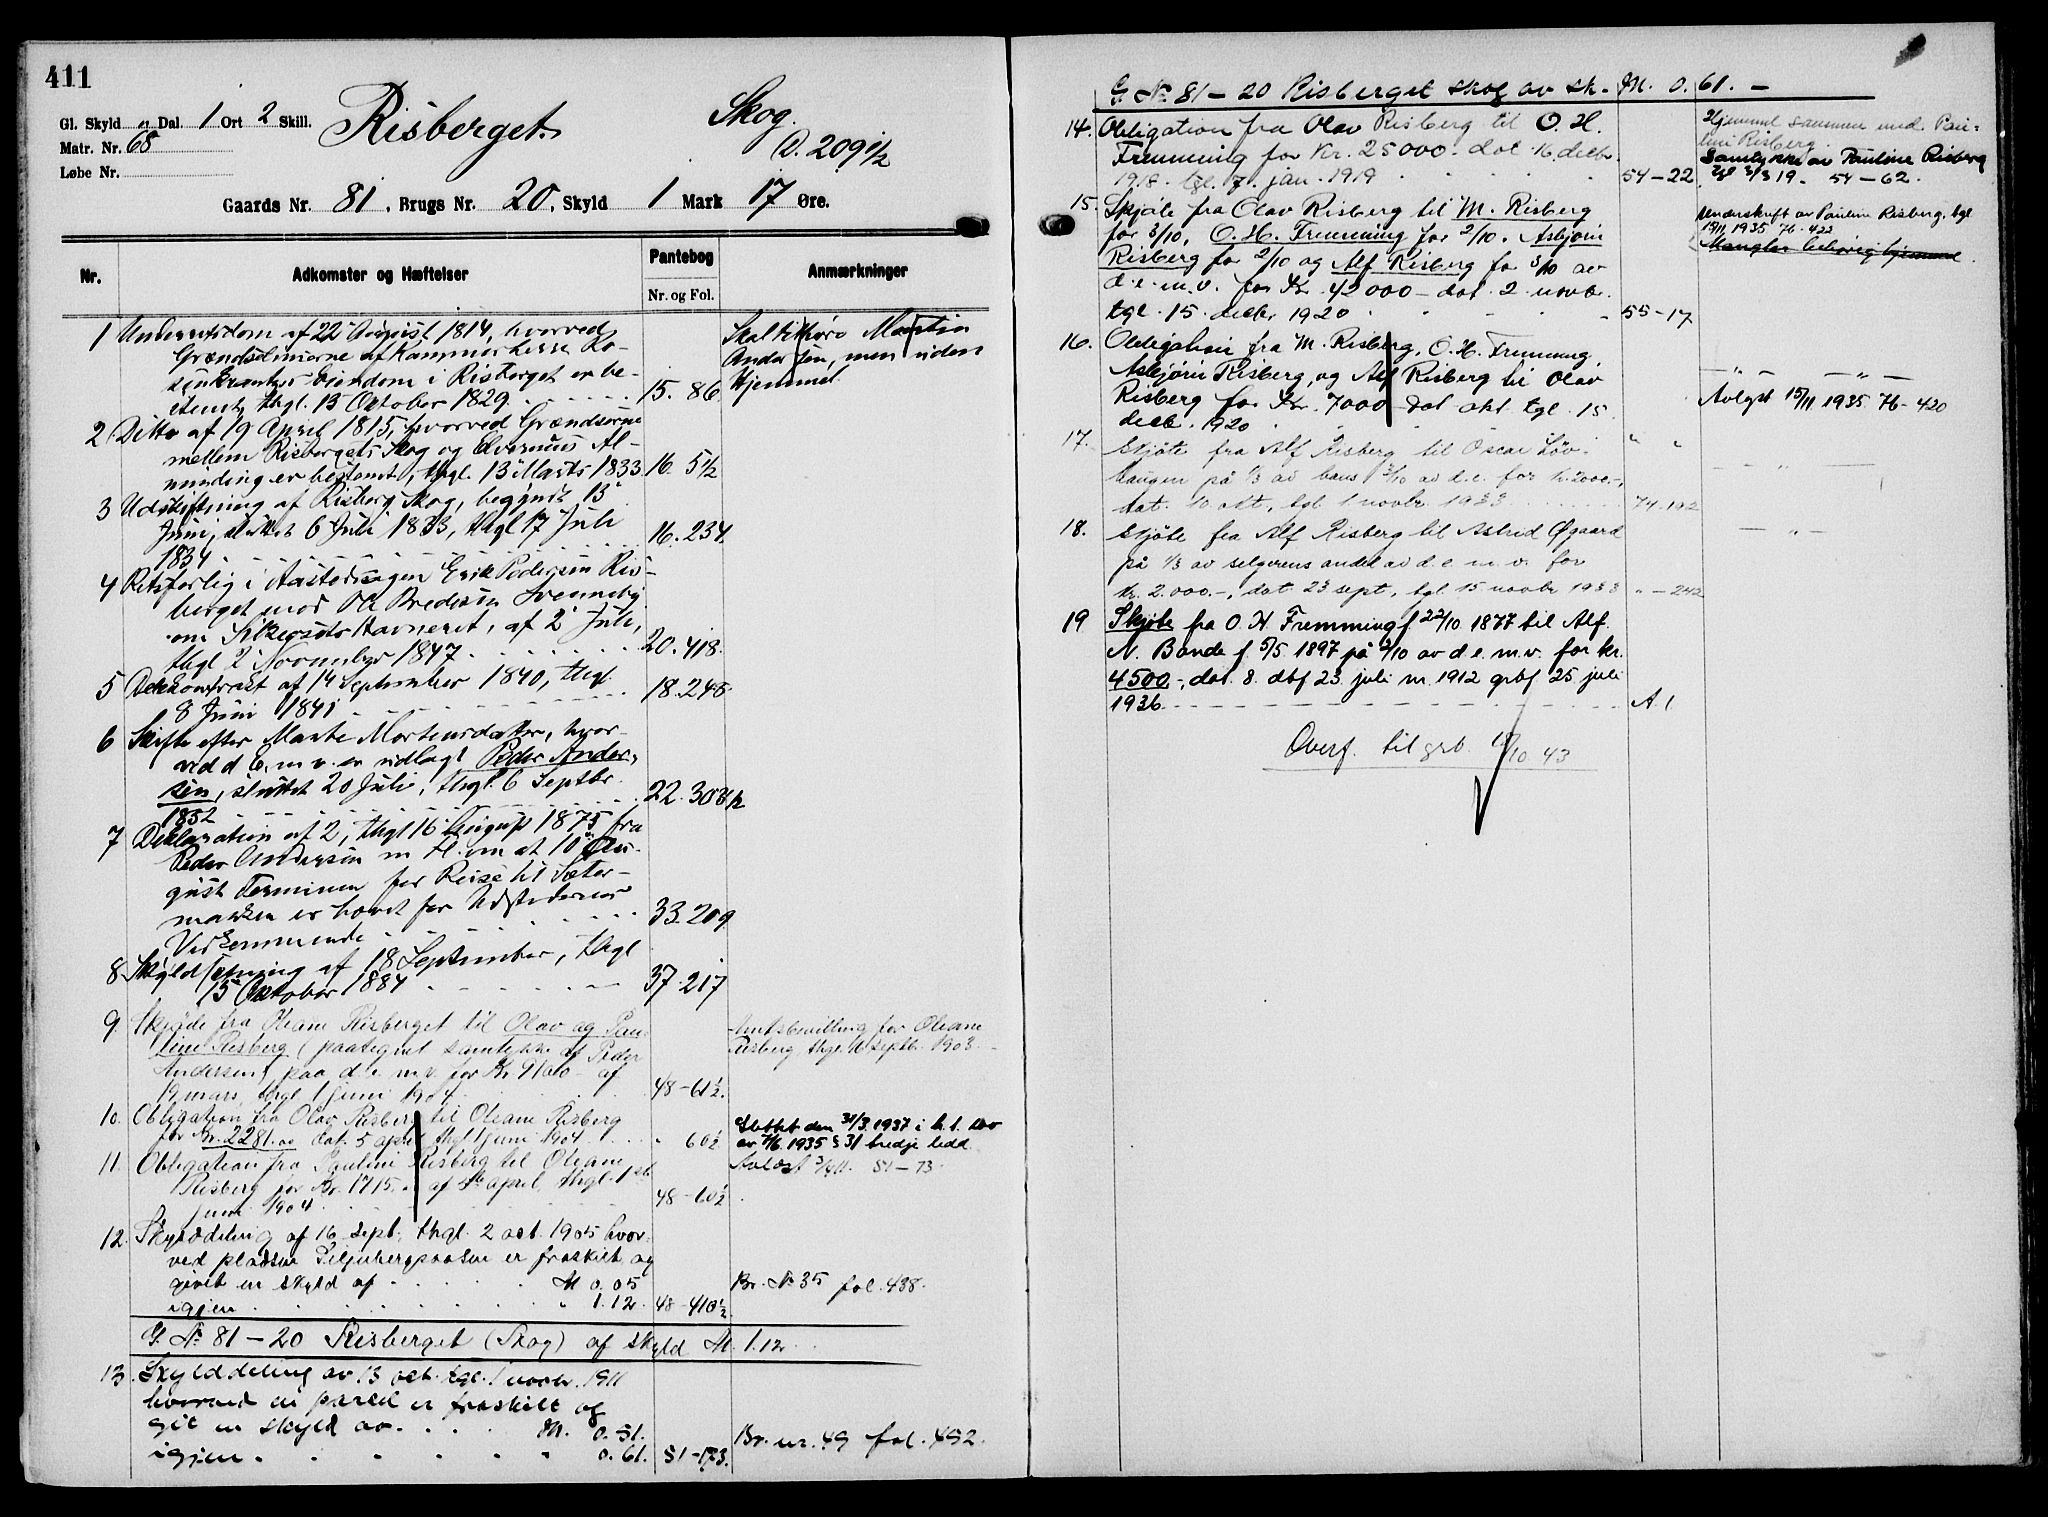 411
Gl. Skyld " Dal. 1 Ort 2 Skill.
Matr. Nr. 68
Løbe Nr.
Risberget.
Skog.
D. 209 1/2
Gaards Nr. 81, Brugs Nr. 20, Skyld 1 Mark 17 Øre.
Nr.
Adkomster og Hæftelser
Pantebog
Nr. og Fol.
Anmærkninger
1 Underretsdom af 22 August 1814, hvorved
Grændselinierne af Kammerherre Ro-
senkrantz's Eiendom i Risberget er be-
stemt, thgl. 15 Oktober 1829. 15. 86
Skal tilhøre Martin
Andersen, men uden
Hjemmel.
2 Ditto af 19 April 1815, hvorved Grændserne
mellem Risbergets Skog og Elverums Al-
minding er bestemt, thgl. 13 Marts 1833 16. 5 1/2
3 Udskiftning af Risberg Skog, begyndt 13
Juni, sluttet 6 Juli 1833, thgl 17 Juli
1834 16. 234.
4 Retsforlig i Aastedssagen Erik Pedersen Ris-
berget mod Ole Bredesen Svenneby
om Havneret, af 2 Juli,
thgl 2 November 1847 20. 418.
5 Delekontrakt af 14 September 1840, thgl
8 Juni 1841 18. 245.
6 Skifte efter Marte Mortensdatter, hvor-
ved d. E. m. v. er udlagt Peder Ander-
sen, sluttet 20 Juli, thgl. 6 Septbr.
1852 22. 308 1/2
7 Deklaration af 2, thgl 16 August 1875 fra
Peder Andersen m. fl. om at 10 Au-
gust Terminen for Reise til Sæter-
marken er hævet for Udstedernes
Vedkommende 33. 209
8 Skyldsætning af 18 September, thgl
15 Oktober 1884 37. 217
9. Skjøde fra Oleane Risberget til Olav og Pau-
line Risberg (paategnet samtykke af Peder
Andersen) paa d. e. m. v. for Kr. af
19 mars, thgl 1 juni 1904 48-61 1/2.
Amtsbevilling for Oleane
Risberg thgl. 16 septbr. 1903.
10. Obligation fra Olav Risberg til Oleane Risberg
for Kr. 2281.00 dat. 5 april thgl 1 juni 1904 " 60 1/2
Slettet den 31/3 1937 i h. t. lov
av 7/6 1935 § 31 tredje ledd.
11. Obligation fra Pauline Risberg til Oleane
Risberg for Kr. 1715, af 5te april, thgl. 1ste
juni 1904 48-60 1/2
Avløst 51-73.
12. Skylddeling af 16 sept. thgl. 2 oct. 1905 hvor-
ved pladsen er fraskilt og
givet en skyld af M 0.05
igjen " 1.12. 48-410 1/2
Br. No 35 fol. 488.
G. No 81-20 Risberget (Skog) af skyld M. 1.12.
13. Skylddeling av 13 oct. tgl. 1 novbr. 1911
hvorved en parcel er fraskilt og
git en skyld av M. 0.51.
igjen " 0.61. 51-173.
Br. nr. 49 fol. 492.
G. No 81-20 Risberget skog av sk. M. 0.61.-
14. Obligation fra Olav Risberg til O. H.
Fremming for Kr. 25000.- dat. 16 decbr.
1918. tgl. 7. jan. 1919 54-22
Hjemmel sammen med Pau-
line Risberg.
Samtykke av Pauline Risberg
tgl 3/3 19. 54-62.
15. Skjøte fra Olav Risberg til M. Risberg
for 3/10, O. H. Fremming for 2/10. Asbjørn
Risberg for 2/10 og Alf Risberg for 3/10 av
d. e. m. v. for Kr. 42000- dat. 2 novb.
tgl. 15. decbr 1920 55-17
Underskrift av Pauline Risberg, tgl
15/11 1935 76-422
Mangler behørig hjemmel.
16. Obligation fra M. Risberg, O. H. Fremming,
Asbjørn Risberg, og Alf Risberg til Olav
Risberg for Kr. 7000- dat okt. tgl. 15
decb. 1920 " "
— " — — " —
Avlyst 15/11 1935. 76-420
17. Skjøte fra Alf Risberg til Oscar Løv-
haugen på 1/3 av hans 3/10 av d. e. for kr. 2000.-,
dat. 10 okt, tgl. 1 novbr. 1933 74-192
— " —
18. Skjøte fra Alf Risberg til Astrid Øgaard
på 1/3 av selgerens andel av d. e. m. v. for
kr. 2.000.-, dat 23 sept, tgl. 15 novbr 1933 " - 242
— " —
19 Skjøte fra O. H. Fremming f 22/10 1877 til Alf.
N. Bande f. 5/5. 1897 på 2/10 av d e. m. v. for kr.
4500-, dat. 8. dbf 23. juli nr. 1912 grbf 25 juli
1936 A. 1
Overf. til grb. /10 43